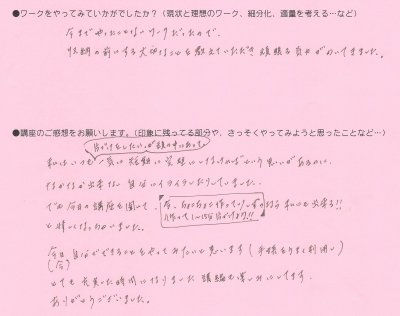 ●ワークをやってみていかがでしたか？（現状と理想のワーク、細分化、適量を考える…など）
今までやったことないワークだったので、
収納の前にする大切なことを教えていただき頑張る気持がわいてきました。
●講座のご感想をお願いします。（印象に残ってる部分や、さっそくやってみようと思ったことなど…）
片づけをしたい。が頭の中にあって。
私はいつも 一気に 短期に 完璧に しなければという思いがあるのに、
なかなか出来ない自分にイライラしたりしていました。
でも今日の講座を聞いて、今、ちょこちょこ作っていく 私にも出来る!!
作って 1～15分片づけ
と嬉しくなっちゃいました。
今日 自分ができることをやってみたいと思います（手帳をうまく利用し）
（今）
とても充実した時間になりました 講編も楽しみにしてます。
ありがとうございました。